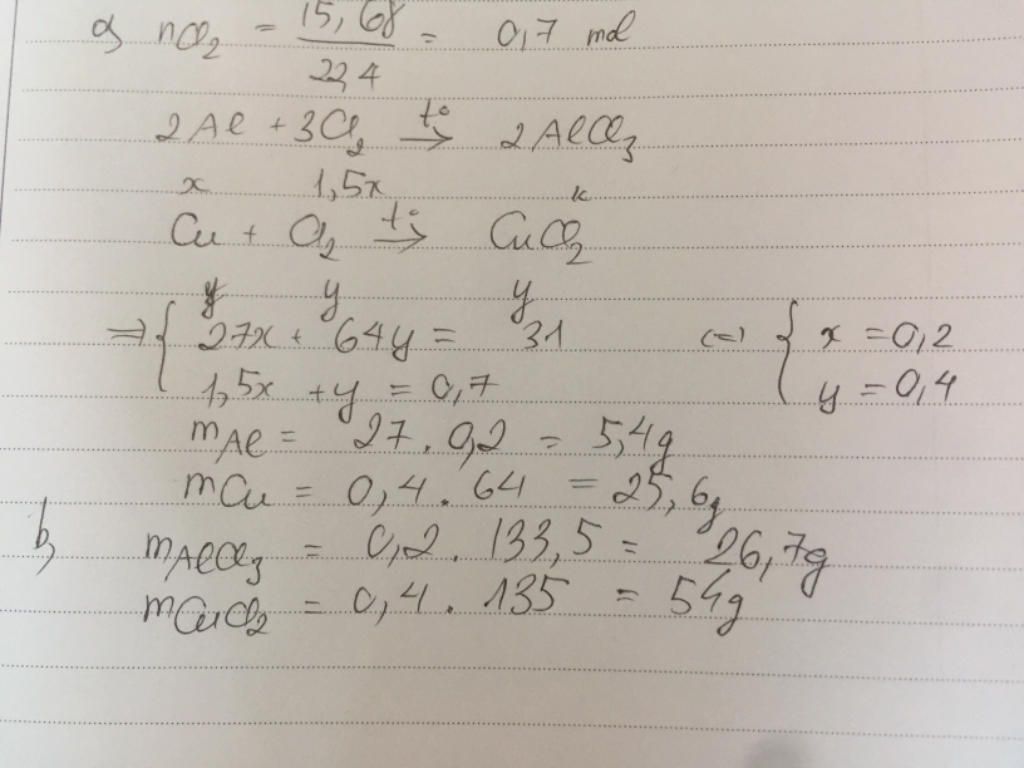 a) nCl2 = 15,68 / 22,4 = 0,7 mol
2Al + 3Cl2 t°→ 2AlCl3
x 1,5x x
Cu + Cl2 t°→ CuCl2
y y y
=> { 27x + 64y = 31 <=> { x = 0,2
1,5x + y = 0,7 y = 0,4
mAl = 27 . 0,2 = 5,4g
mCu = 0,4 . 64 = 25,6g
b, mAlCl3 = 0,2 . 133,5 = 26,7g
mCuCl2 = 0,4 . 135 = 54g